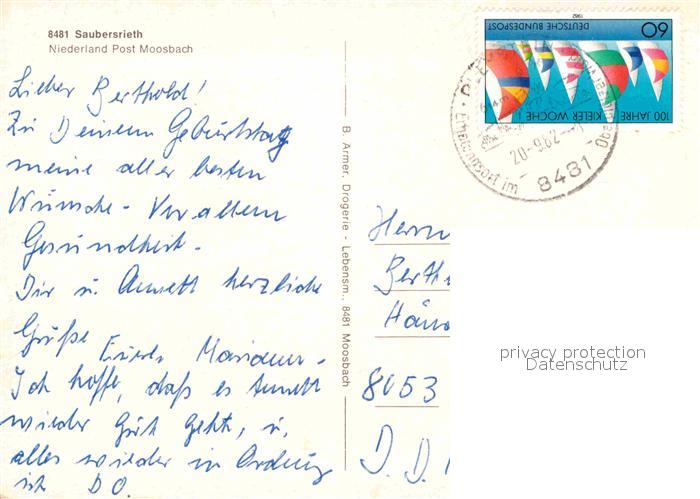 8481 Saubersrieth
Niederland Post Moosbach
Lieber Berthold!
Zu Deinem Geburtstag
meine aller besten
Wünsche - Vor allem
Gesundheit -
Dir u. Annett herzliche
Grüße
Eure Marianne -
Ich hoffe, daß es Annett
wieder Gut geht, u.
alles wieder in Ordnung
ist
B. Armer, Drogerie - Lebensm., 8481 Moosbach
60
DEUTSCHE BUNDESPOST
1982
100 JAHRE KIELER WOCHE
20.-9.82
8481
Erholungsort im
Herrn
Berth
8053
D. D.
privacy protection
Datenschutz